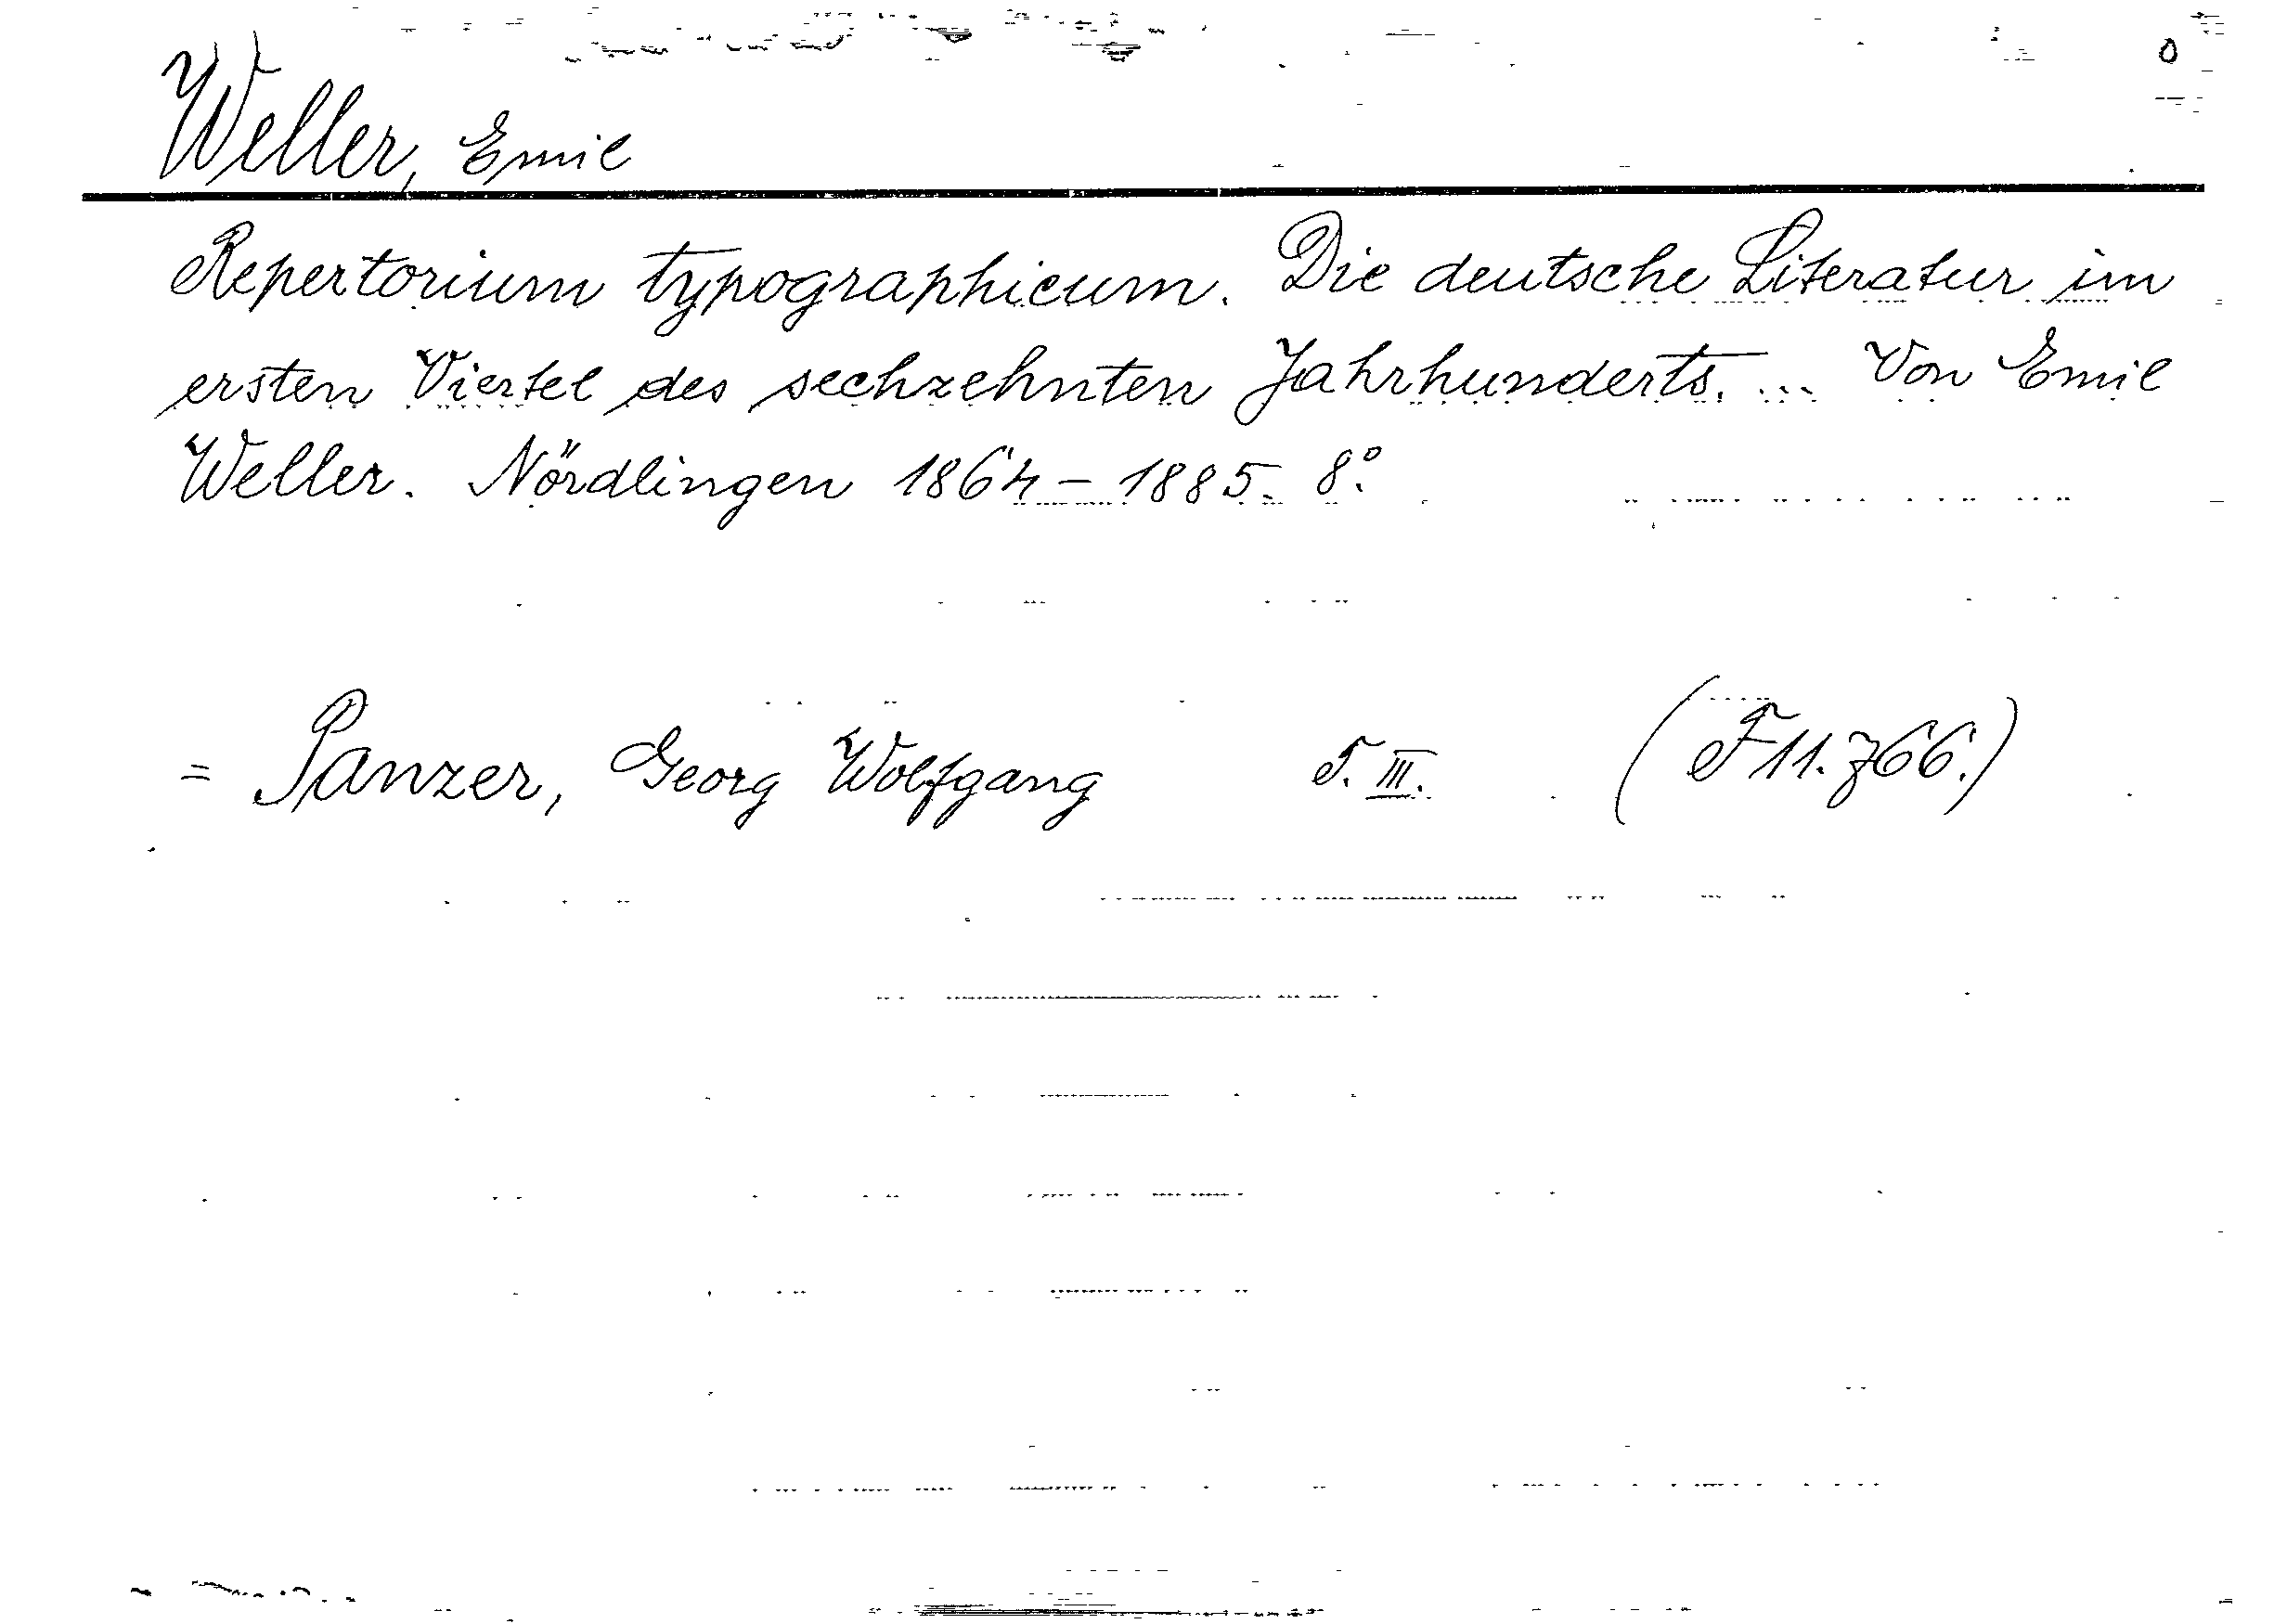 Weller, Emil
Repertorium typographicum. Die deutsche Literatur im
ersten Viertel des sechzehnten Jahrhunderts. ... Von Emil
Weller. Nördlingen 1864-1885. 8°.
= Panzer, Georg Wolfgang T. III. (F11.766.)